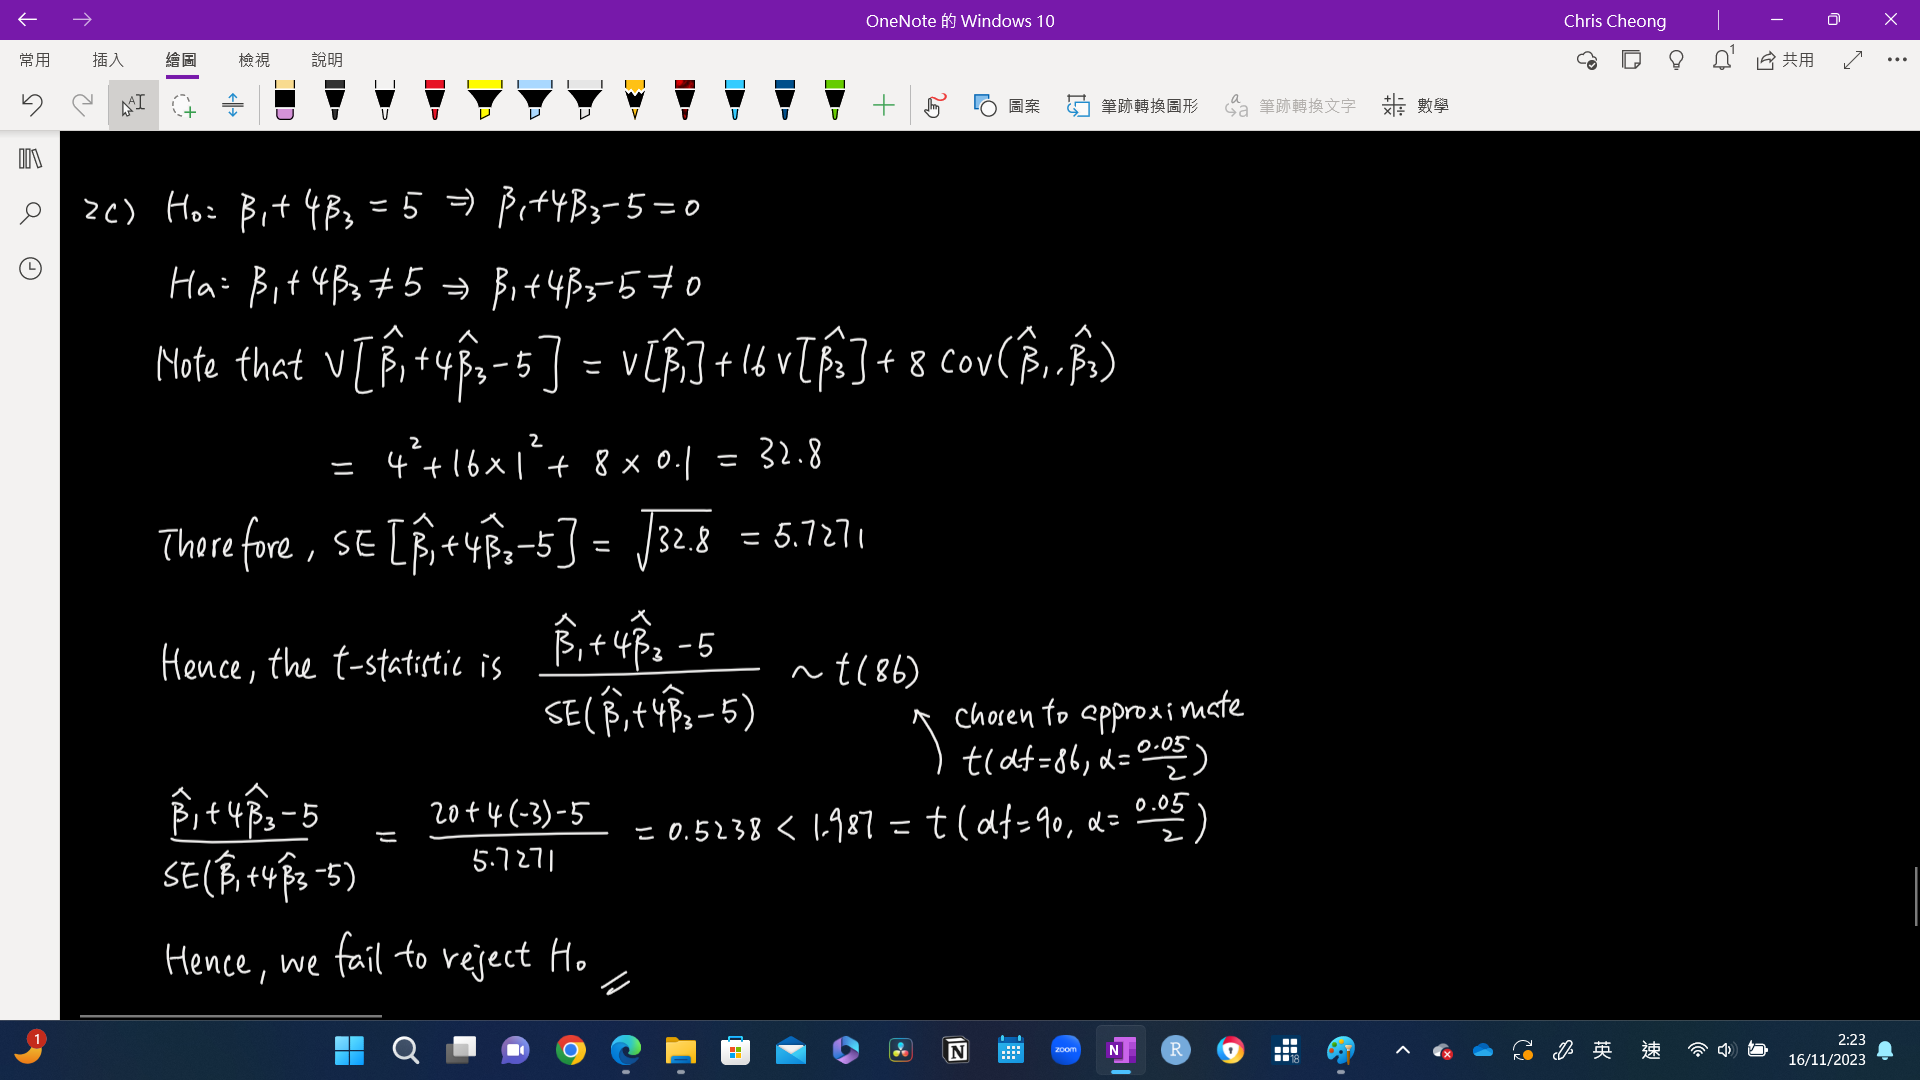 OneNote 的 Windows 10
Chris Cheong
常用 插入 繪圖 檢視 說明
1
共用
圖案 筆跡轉換圖形 筆跡轉換文字 數學
2c) H₀: β₁+4β₃ = 5 ⇒ β₁+4β₃−5=0
Ha: β₁+4β₃ ≠ 5 ⇒ β₁+4β₃−5≠0
Note that V[β̂₁+4β̂₃−5] = V[β̂₁]+16V[β̂₃]+8 Cov(β̂₁,β̂₃)
= 4²+16×1²+ 8 × 0.1 = 32.8
Therefore, SE[β̂₁+4β̂₃−5] = √32.8 = 5.7271
Hence, the t-statistic is (β̂₁+4β̂₃−5)/SE(β̂₁+4β̂₃−5) ~ t(86)
chosen to approximate
t(df=86, α=0.05/2)
(β̂₁+4β̂₃−5)/SE(β̂₁+4β̂₃−5) = (20+4(-3)-5)/5.7271 = 0.5238 < 1.987 = t(df=90, α=0.05/2)
Hence, we fail to reject H₀
1
zoom
N
R
18
英 速
2:23
16/11/2023